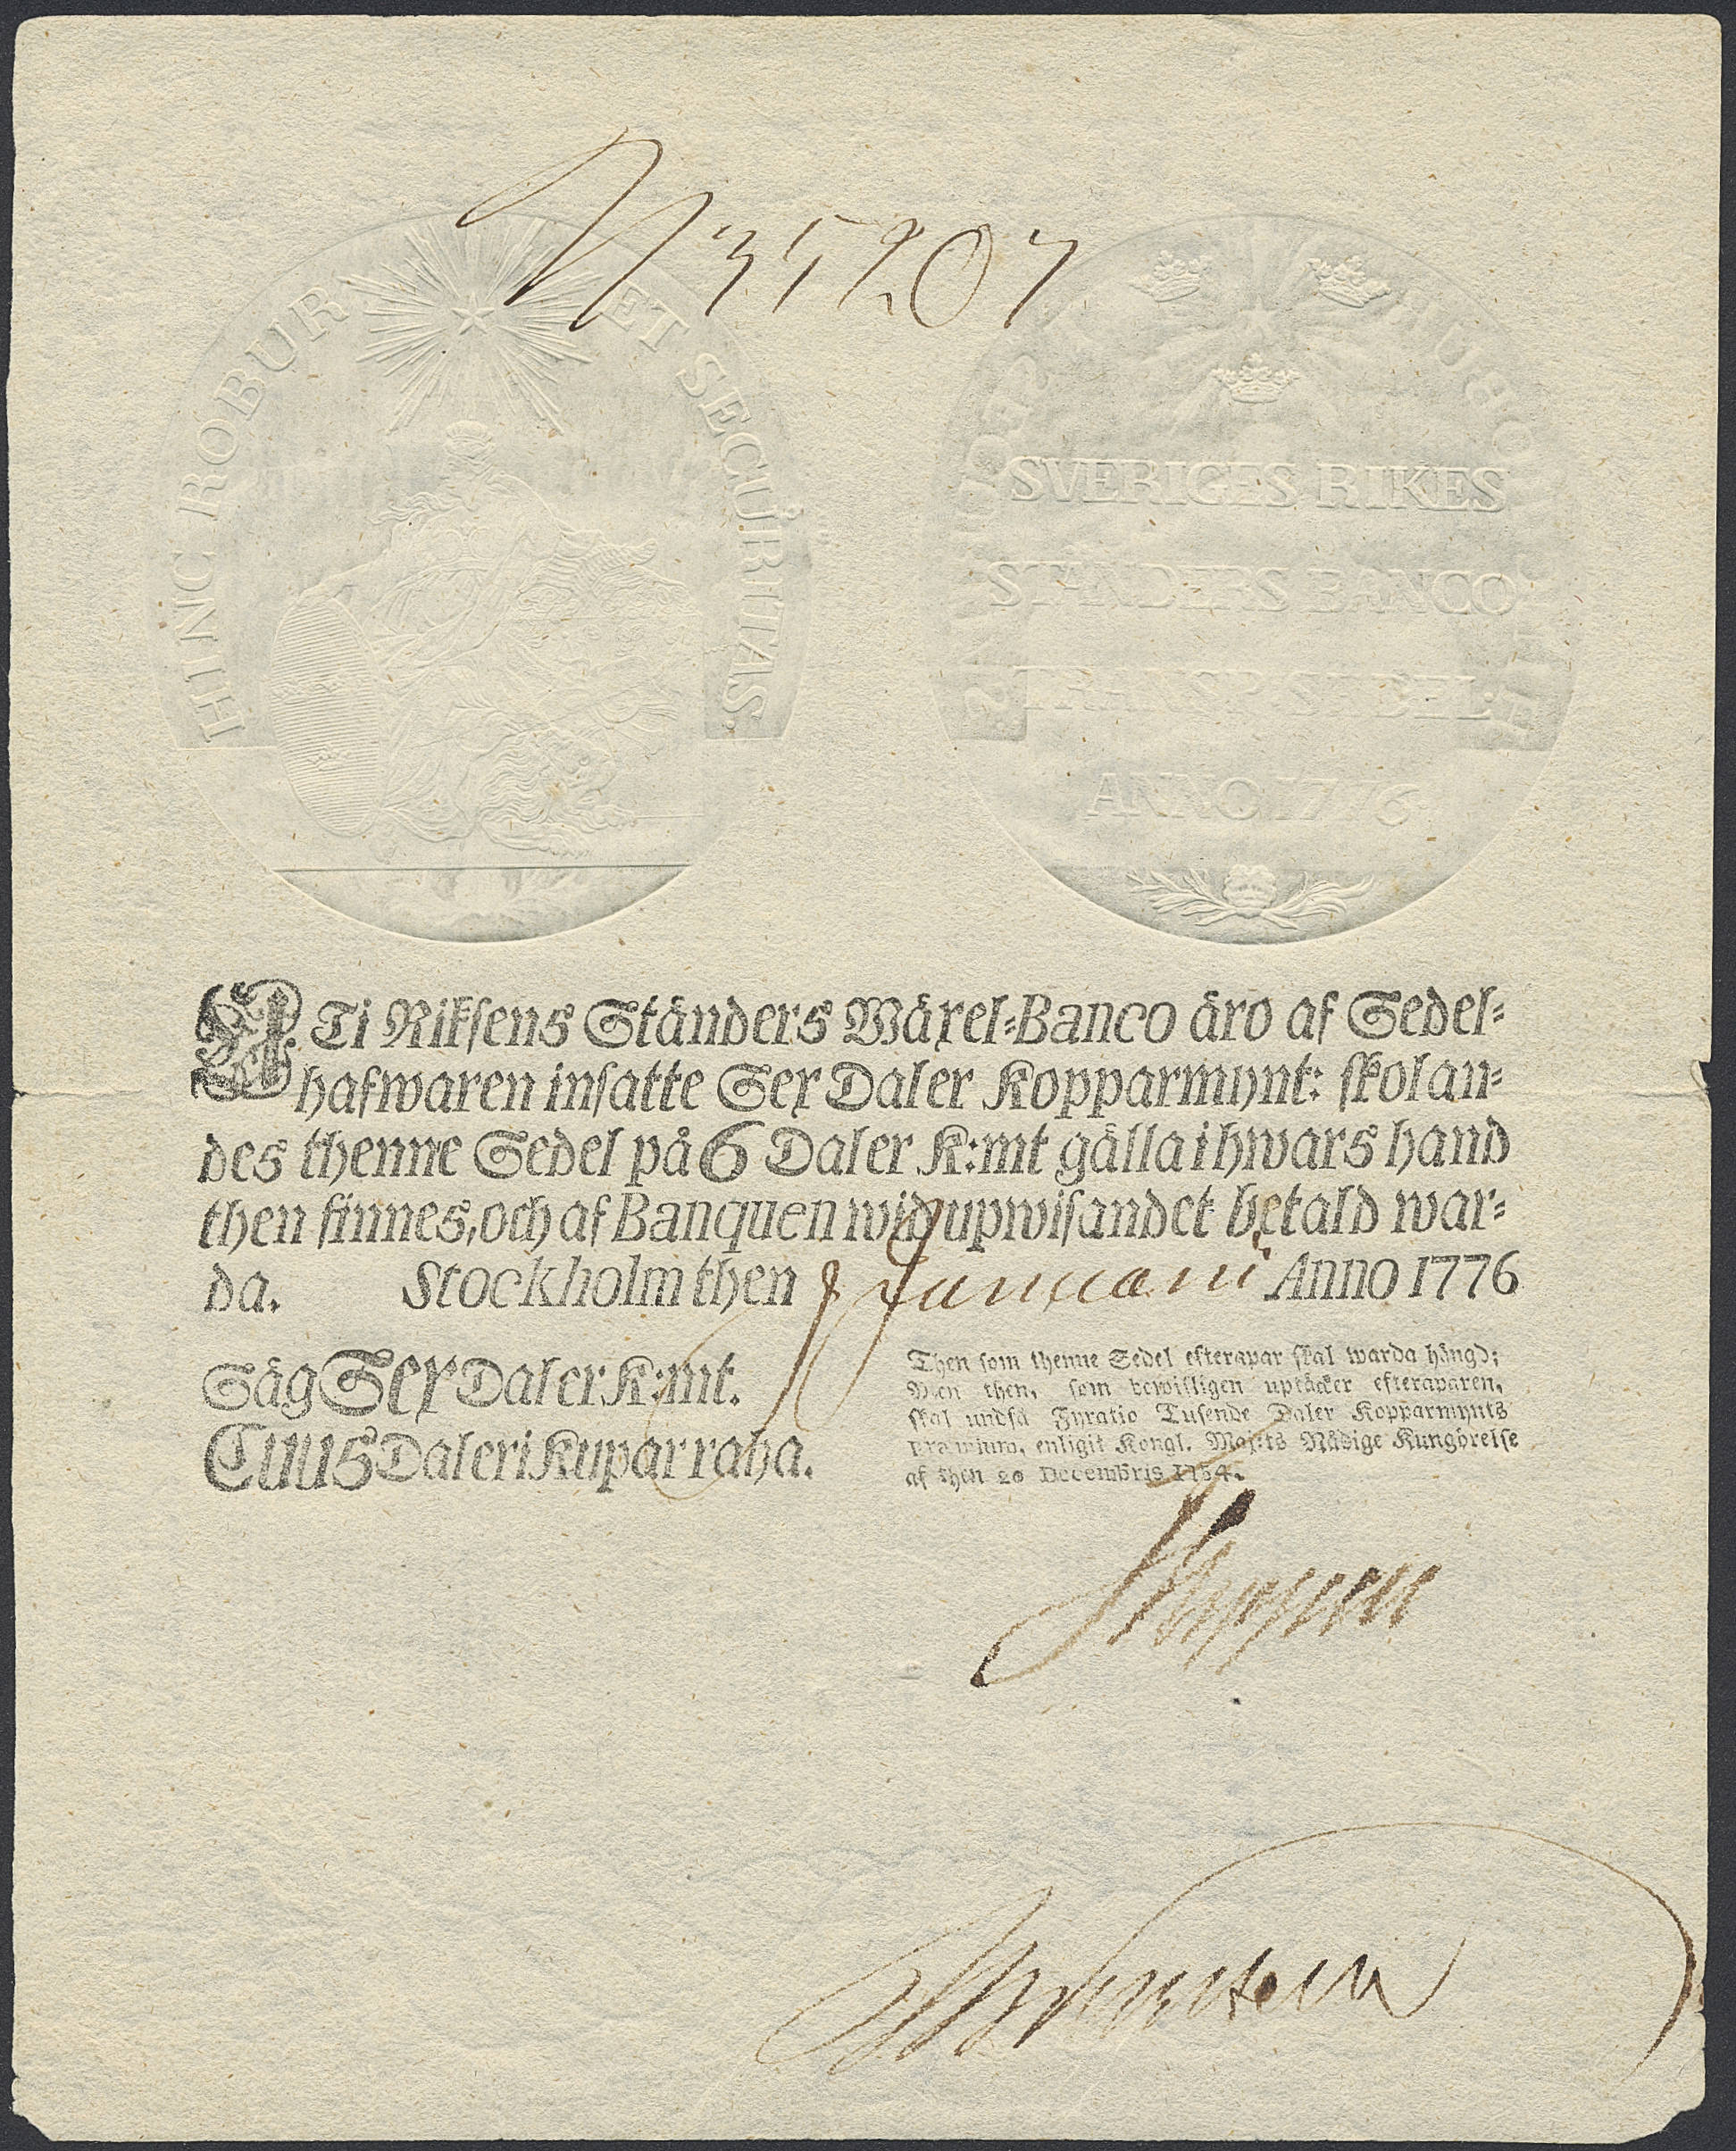 N 35207
HINC ROBUR ET SECURITAS.
SVERIGES RIKES
STÄNDERS BANCO
TRANSP. SEDEL.
ANNO 1776
I Ti Riksens Ständers Wäxel-Banco äro af Sedel-
hafwaren insatte Sex Daler Kopparmynt: skolan-
des thenne Sedel på 6 Daler K:mt gälla i hwars hand
then finnes, och af Banquen wid upwisandet betald war-
da. Stockholm then 8 Januarii Anno 1776
Säg Sex Daler K:mt.
Cuus Daleri Kupar raha.
Then som thenne Sedel efterapar skal warda hängd;
Men then, som bewisligen uptäcker efteraparen,
skal undfå Fyratio Tusende Daler Kopparmynts
præmium, enligit Kongl. Maj:ts Nådige Kungörelse
af then 20 Decembris 1754.